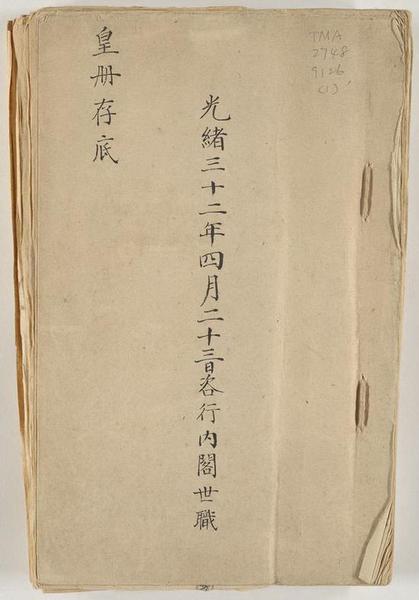 TMA
2748
9126
(1)
光緒三十二年四月二十三日咨行內閣世職
皇册存底